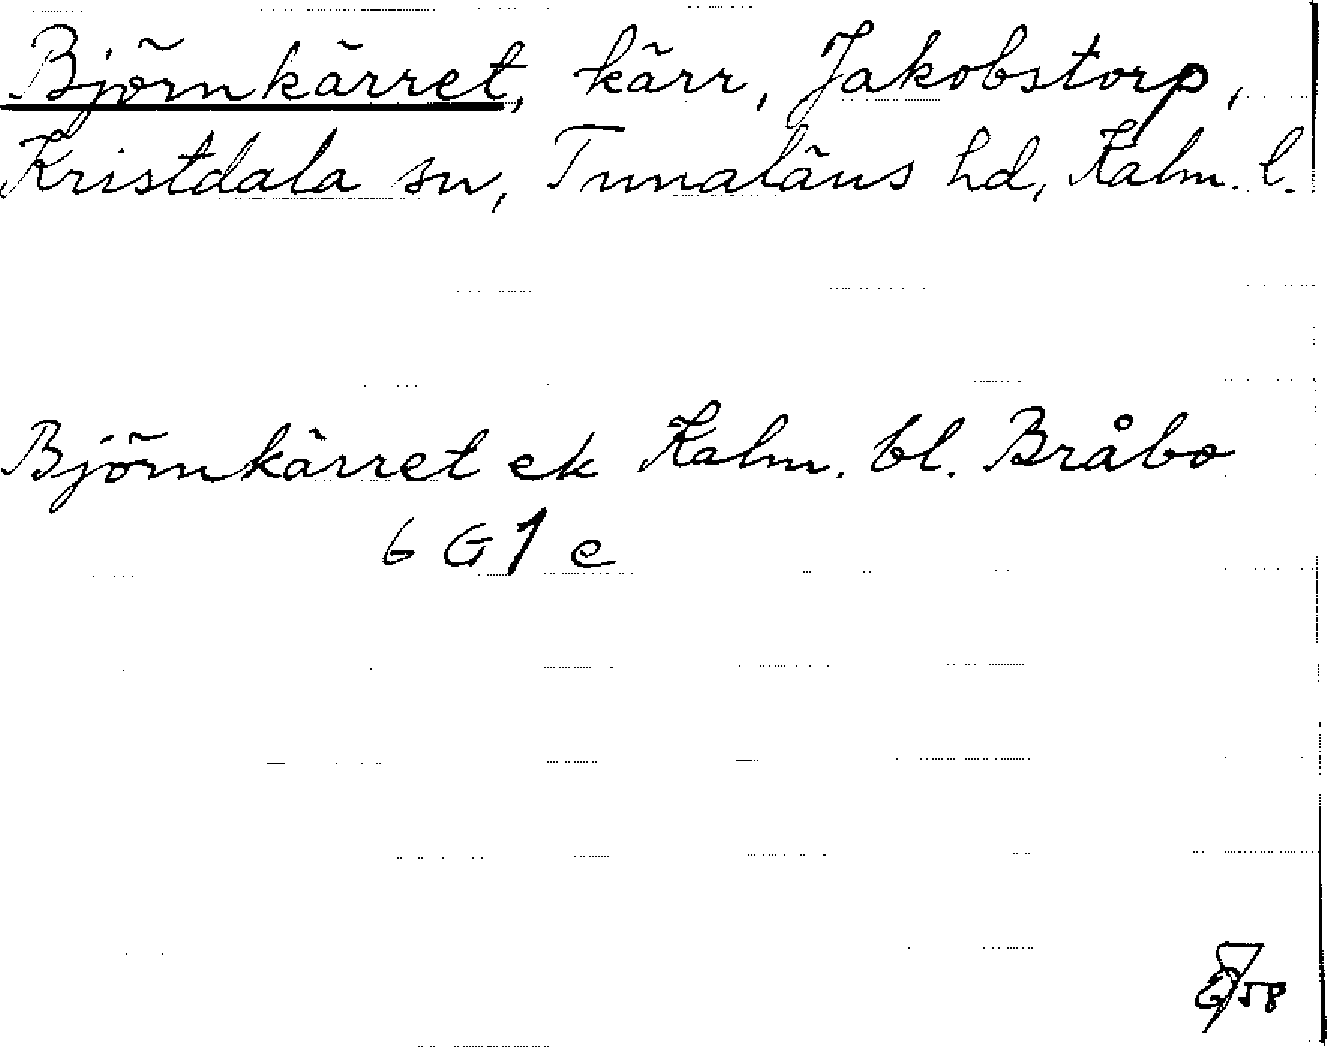 Björnkärret, kärr, Jakobstorp,
Kristdala sn, Tunaläns hd, Kalm. l.
Björnkärret ek Kalm. bl. Bråbo
6 G 1 e
58